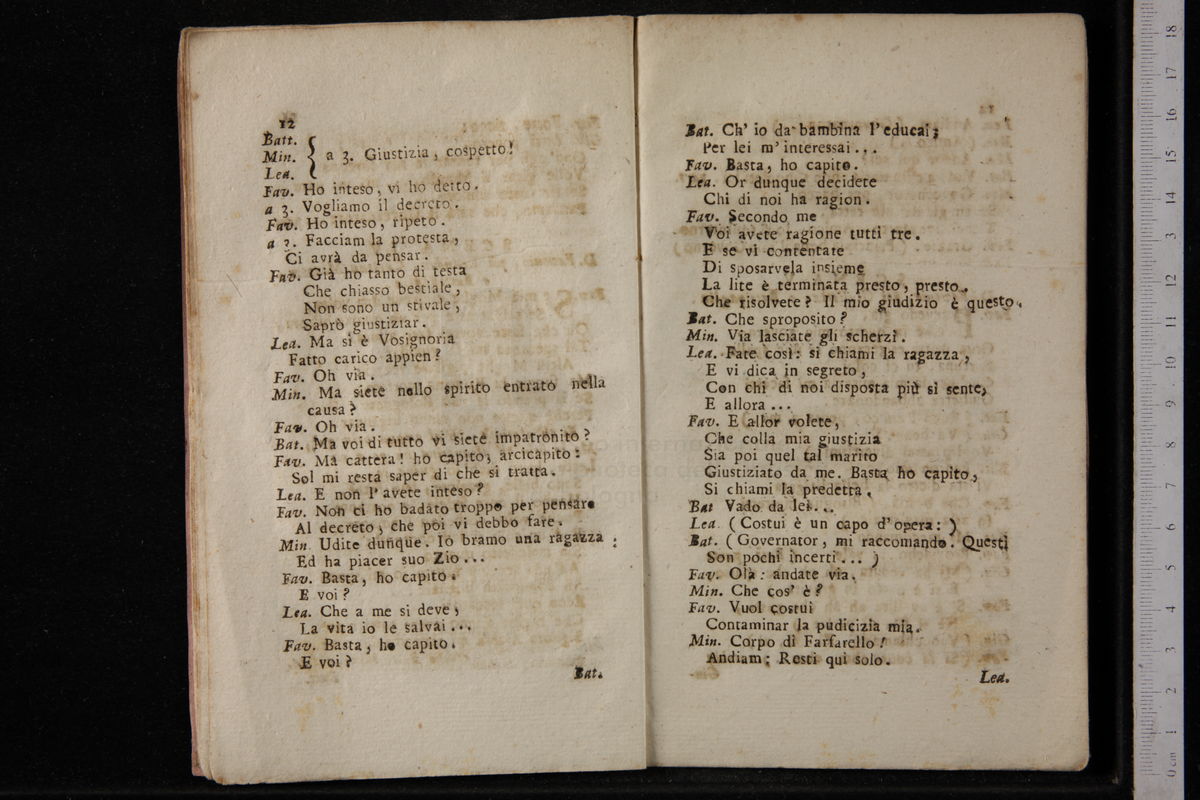 12
Batt.
Min. a 3. Giustizia, cospetto!
Lea.
Fav. Ho inteso, vi ho detto.
a 3. Vogliamo il decreto.
Fav. Ho inteso, ripeto.
a 3. Facciam la protesta,
Ci avrà da pensar.
Fav. Già ho tanto di testa
Che chiasso bestiale,
Non sono un stivale,
Saprò giustiziar.
Lea. Ma si è Vosignoria
Fatto carico appien?
Fav. Oh via.
Min. Ma siete nello spirito entrato nella
causa?
Fav. Oh via.
Bat. Ma voi di tutto vi siete impatronito?
Fav. Ma cattera! ho capito, arcicapito:
Sol mi resta saper di che si tratta.
Lea. E non l'avete inteso?
Fav. Non ci ho badato troppo per pensare
Al decreto, che poi vi debbo fare.
Min. Udite dunque. Io bramo una ragazza;
Ed ha piacer suo Zio...
Fav. Basta, ho capito.
E voi?
Lea. Che a me si deve,
La vita io le salvai...
Fav. Basta, ho capito.
E voi?
Bat.
Bat. Ch' io da bambina l'educai;
Per lei m'interessai...
Fav. Basta, ho capito.
Lea. Or dunque decidete
Chi di noi ha ragion.
Fav. Secondo me
Voi avete ragione tutti tre.
E se vi contentate
Di sposarvela insieme
La lite è terminata presto, presto.
Che risolvete? Il mio giudizio è questo.
Bat. Che sproposito?
Min. Via lasciate gli scherzi.
Lea. Fate così: si chiami la ragazza,
E vi dica in segreto,
Con chi di noi disposta più si sente,
E allora...
Fav. E allor volete,
Che colla mia giustizia
Sia poi quel tal marito
Giustiziato da me. Basta ho capito,
Si chiami la predetta.
Bat Vado da lei...
Lea. (Costui è un capo d'opera: )
Bat. (Governator, mi raccomando. Questi
Son pochi incerti... )
Fav. Olà: andate via.
Min. Che cos' è?
Fav. Vuol costui
Contaminar la pudicizia mia.
Min. Corpo di Farfarello!
Andiam: Resti qui solo.
Lea.